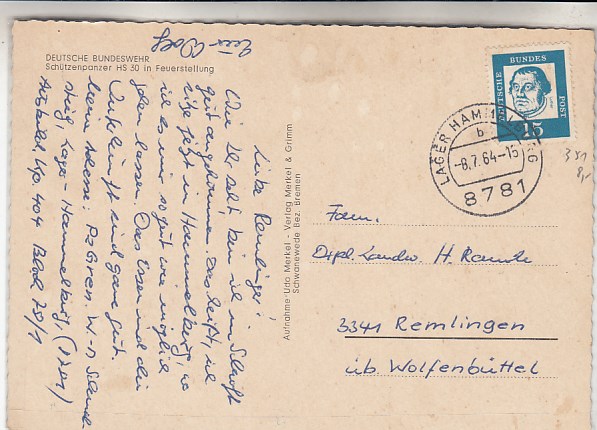 DEUTSCHE BUNDESWEHR
Schützenpanzer HS 30 in Feuerstellung
Liebe Remlinger!
Wie Ihr seht, bin ich in
gut angekommen. Das heißt, ich
sitze jetzt in Hammelburg, wo
ich es mir so gut wie möglich
gehen lassen. Das Essen und die
Unterkunft sind ganz gut.
Meine Adresse: Pz Gren. W.-
Lager-Hammelburg, (8781)
Block 20/1
Euer Wolf
Aufnahme: Udo Merkel - Verlag Merkel & Grimm
Schwanewede Bez. Bremen
DEUTSCHE BUNDES POST
15
LAGER HAMMELBURG
b
-8.7.64-15
8781
Fam.
Dipl. Landw. H.
3341 Remlingen
üb. Wolfenbüttel